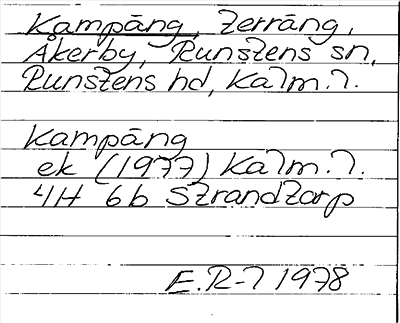 Kampäng, Terräng,
Åkerby, Runstens sn,
Runstens hd, Kalm. l.
Kampäng
ek (1977) Kalm. l.
4H 6b Strandtorp
E.R-l 1978